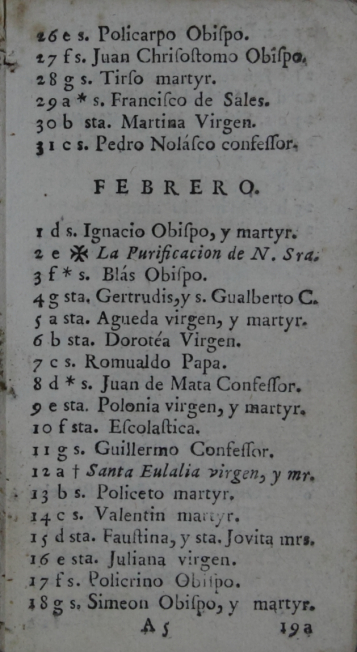 26 e s. Policarpo Obiſpo.
27 f s. Juan Chriſoſtomo Obiſpo.
28 g s. Tirſo martyr.
29 a * s. Franciſco de Sales.
30 b sta. Martina Virgen.
31 c s. Pedro Noláſco confeſſor.
FEBRERO.
1 d s. Ignacio Obiſpo, y martyr.
2 e ✠ La Purificacion de N. Sra.
3 f * s. Blás Obiſpo.
4 g sta. Gertrudis, y s. Gualberto C.
5 a sta. Agueda virgen, y martyr.
6 b sta. Dorotéa Virgen.
7 c s. Romualdo Papa.
8 d * s. Juan de Mata Confeſſor.
9 e sta. Polonia virgen, y martyr.
10 f sta. Eſcolaſtica.
11 g s. Guillermo Confeſſor.
12 a † Santa Eulalia virgen, y mr.
13 b s. Policeto martyr.
14 c s. Valentin martyr.
15 d sta. Fauſtina, y sta. Jovita mrs.
16 e sta. Juliana virgen.
17 f s. Policrino Obiſpo.
18 g s. Simeon Obiſpo, y martyr.
A 5 19 a